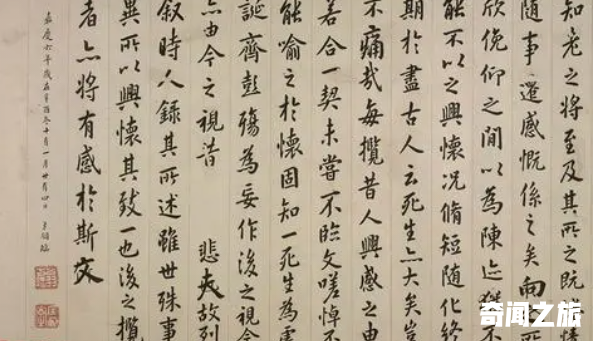 知老之將至及其所之既
隨事遷感慨係之矣向所
欣俛仰之間以為陳迹猶
能不以之興懷況脩短隨化終
期於盡古人云死生亦大矣豈
不痛哉每攬昔人興感之由
若合一契未嘗不臨文嗟悼不
能喻之於懷固知一死生為虛
誕齊彭殤為妄作後之視今
亦由今之視昔 悲夫故列
敘時人錄其所述雖世殊事
異所以興懷其致一也後之攬
者亦將有感於斯文
嘉慶六年歲在辛酉冬十月一月廿有四日 臨
奇闻之旅